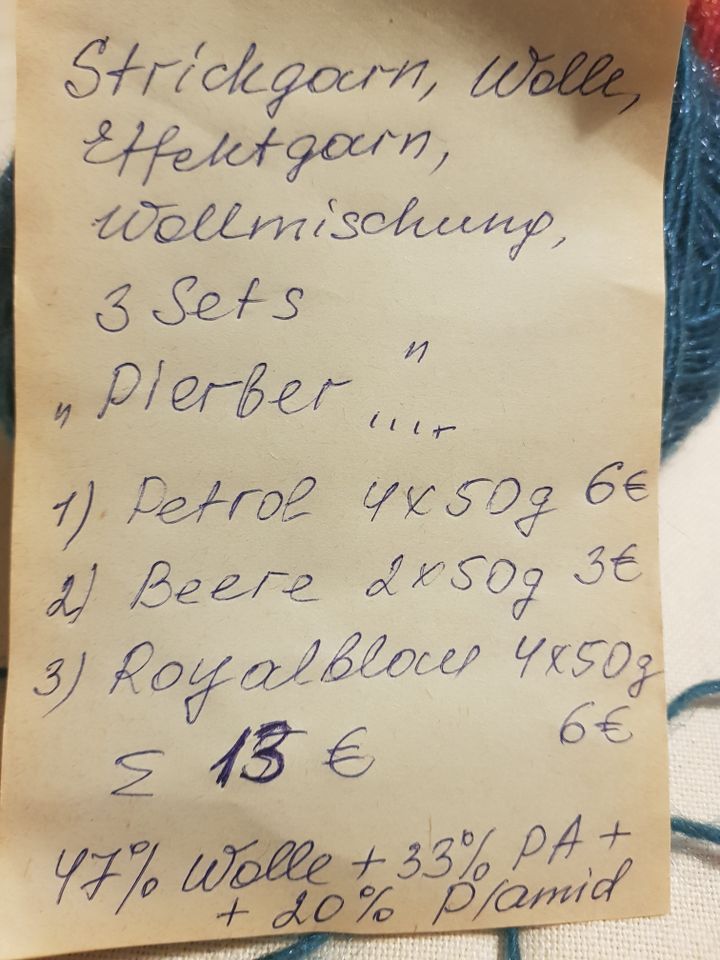 Strickgarn, Wolle,
Effektgarn,
Wollmischung,
3 Sets
"Pierber ...."
1) Petrol 4x50g 6€
2) Beere 2x50g 3€
3) Royalblau 4x50g
6€
Σ 13 €
47% Wolle + 33% PA +
+ 20% Plamid